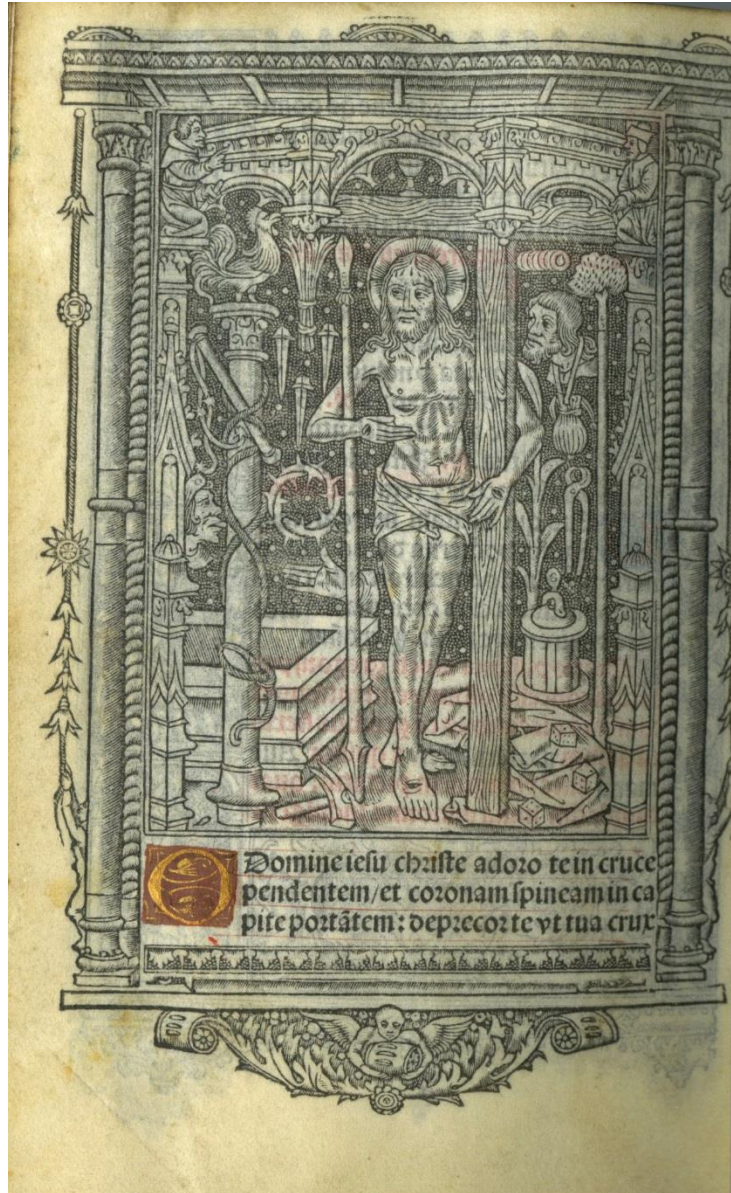 O Domine iesu christe adoro te in cruce
pendentem/et coronam spineam in ca
pite portãtem: deprecor te vt tua crux